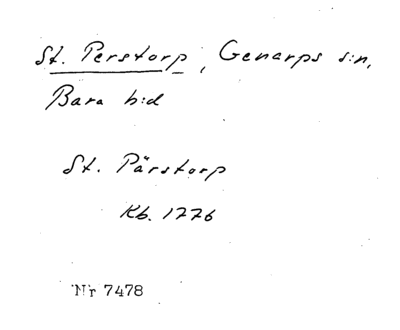 St. Perstorp, Genarps s:n,
Bara h:d
St. Pärstorp
Kb. 1776
Nr 7478